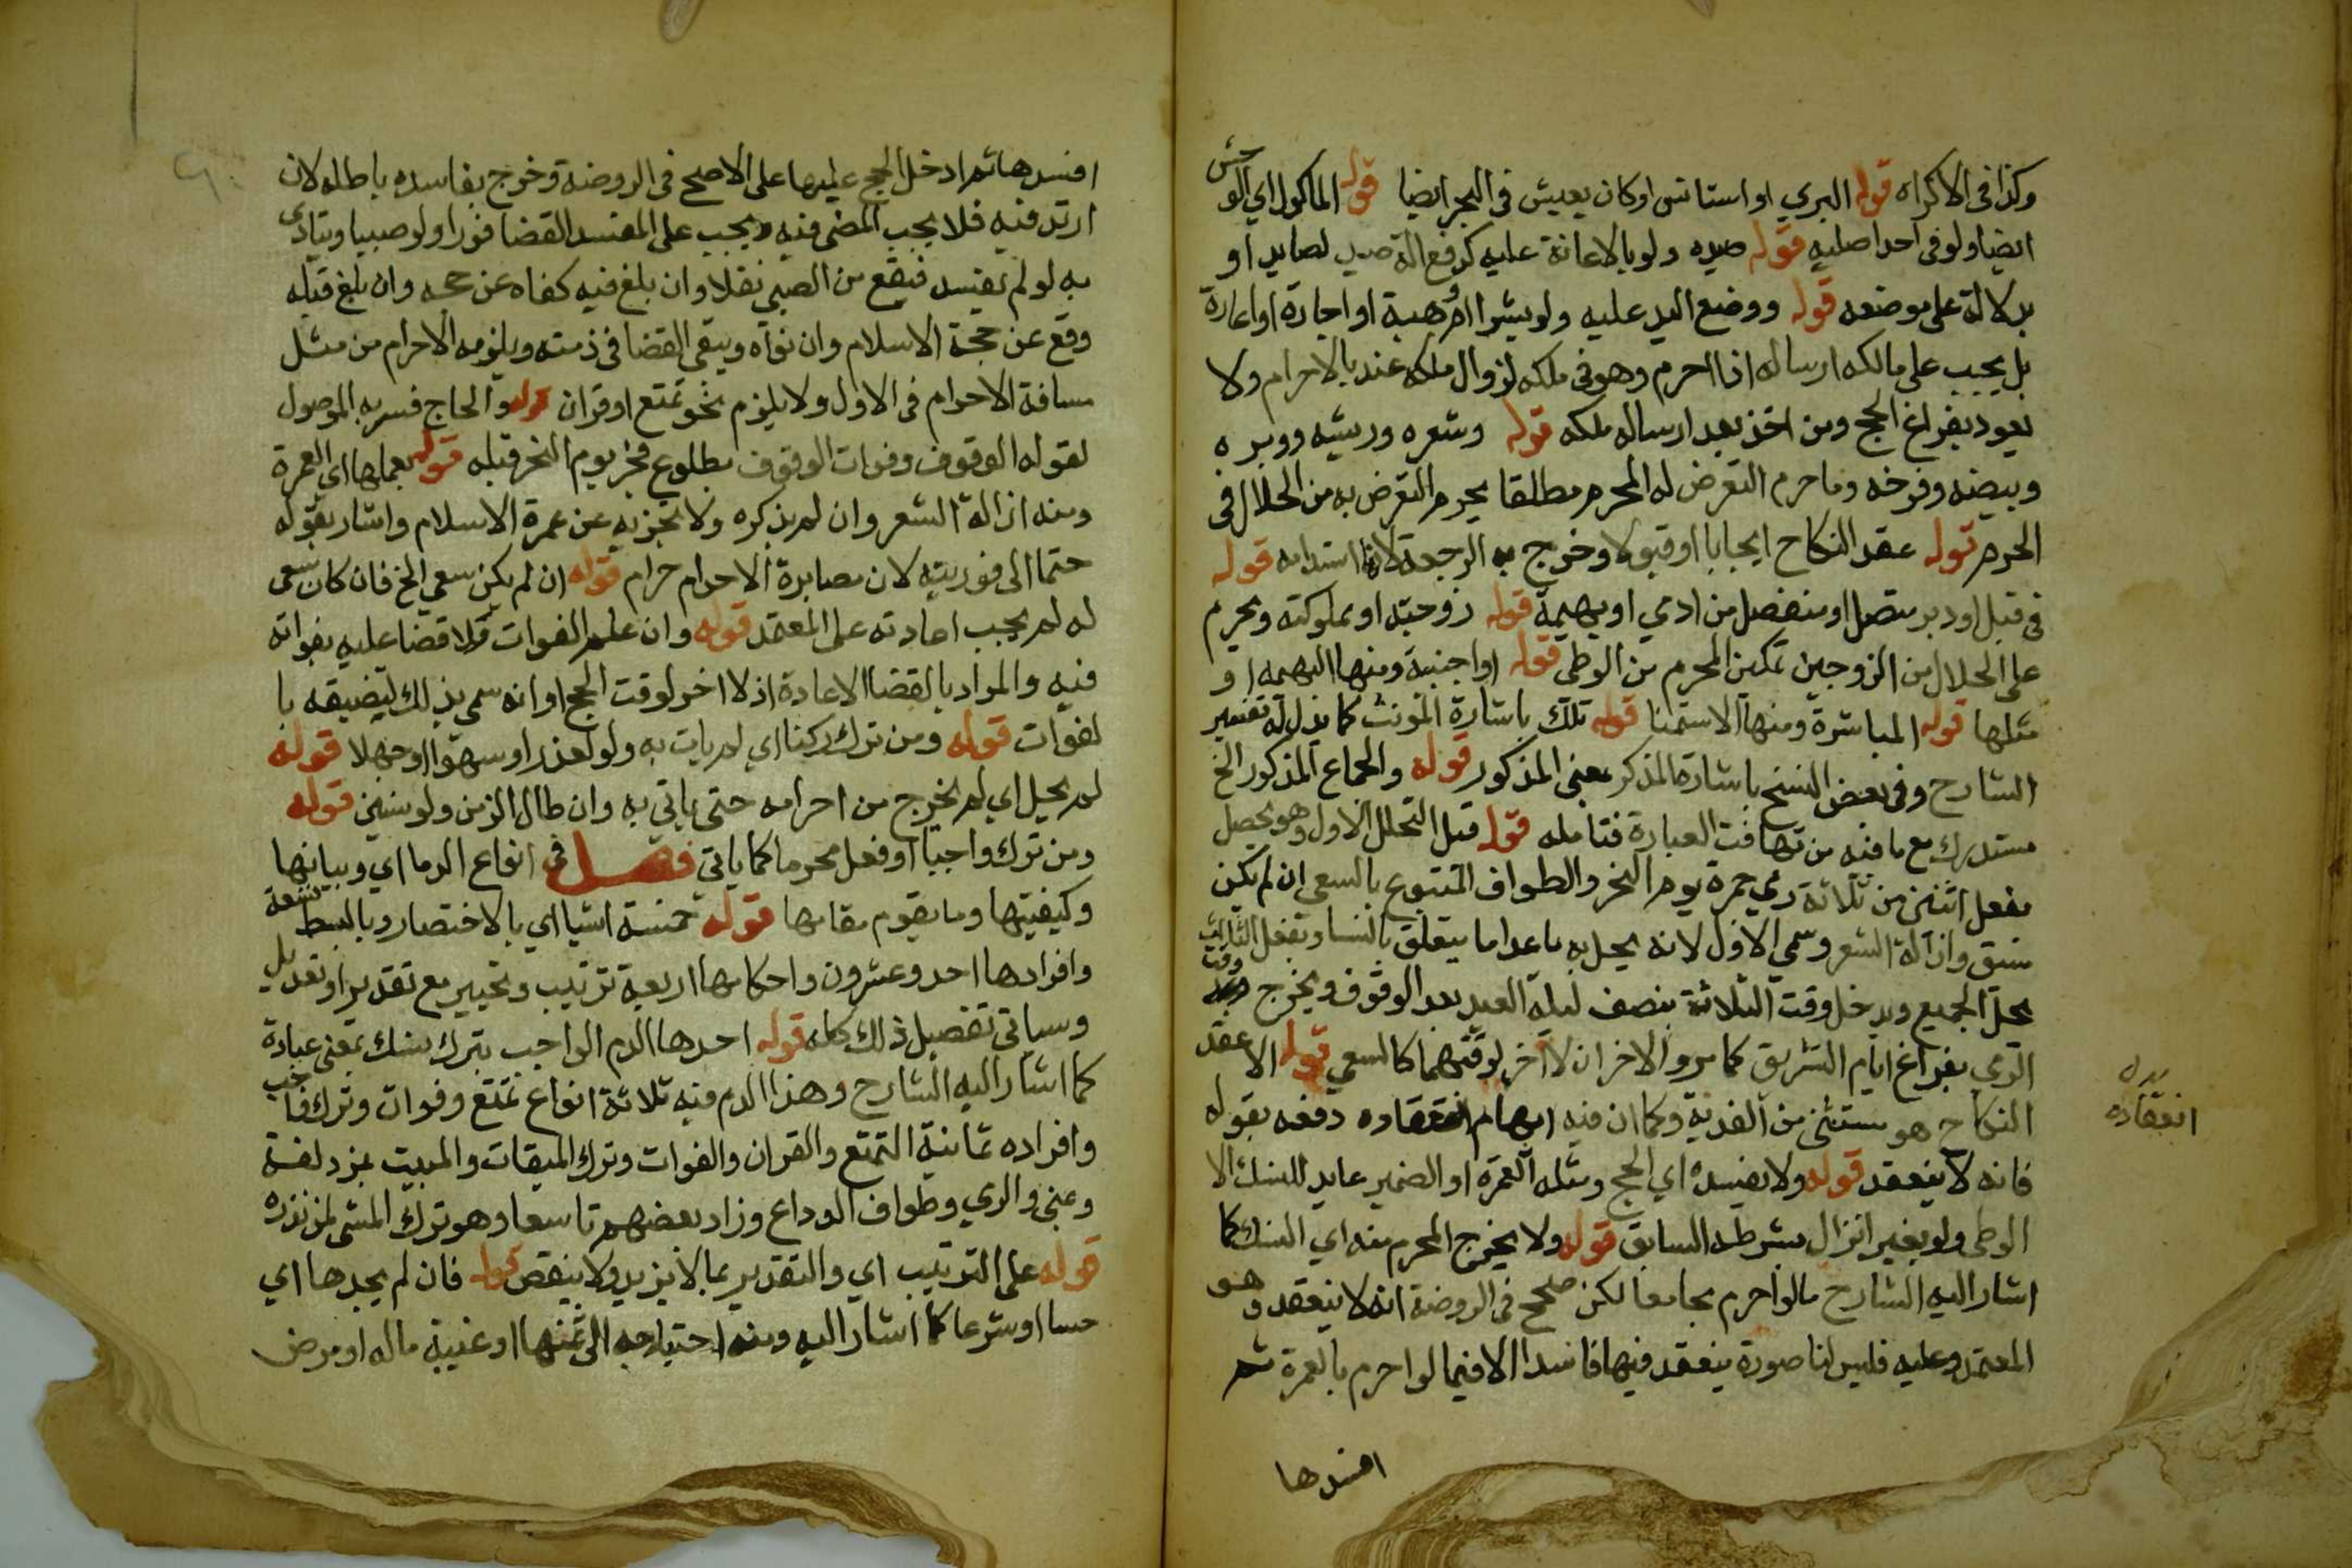 وكذا في الاكراه قوله البري او استانس او كان يعيش في البحر ايضا قوله الماكول اي الوحش
ايضا ولو في احد اصليه قوله صيده ولو بالاعانة عليه كدفع الة صيد لصايد او
بدلالة على موضعه قوله ووضع اليد عليه ولو بشرا او هبة او اجارة او اعارة
بل يجب على مالكه ارساله اذا احرم وهو في ملكه لزوال ملكه عنه بالاحرام ولا
يعود بفراغ الحج ومن اخذ بعد ارساله ملكه قوله وشعره وريشه ووبره
وبيضه وفرخه وما حرم التعرض له المحرم مطلقا يحرم التعرض به من الحلال في
الحرم قوله عقد النكاح ايجابا او قبولا وخرج به الرجعة لانها استدامه قوله
في قبل او دبر متصل او منفصل من ادمي او بهيمة قوله زوجته او مملوكته ويحرم
على الحلال من الزوجين تمكين المحرم من الوطى قوله او اجنبية ومنها البهيمه او
مثلها قوله المباشرة ومنها الاستمنا قوله تلك باشارة المونث كما يدل له تفسير
الشارح وفي بعض النسخ باشارة المذكر بمعنى المذكور قوله والجماع المذكور الخ
مستدرك مع ما فيه من تهافت العبارة فتامله قوله قبل التحلل الاول وهو يحصل
بفعل اثنين من ثلاثة رمي جمرة يوم النحر والطواف المتبوع بالسعي ان لم يكن
سبق وازالة الشعر وسمي الاول لانه يحل به ما عدا ما يتعلق بالنسا وبفعل الثالث
يحل الجميع ويدخل وقت الثلاثة بنصف ليلة العيد بعد الوقوف ويخرج وقت
الرمي بفراغ ايام التشريق كما مر والاخران لا اخر لوقتهما كالسعي قوله الا عقد
النكاح هو مستثنى من الفدية وكما ان فيه ابهام انعقاده دفعه بقوله
بدل
انعقاده
فانه لا ينعقد قوله ولا يفسده اي الحج ومثله العمرة او الضمير عايد للنسك الا
الوطى ولو بغير انزال بشرطه السابق قوله ولا يخرج المحرم منه اي النسك كما
اشار اليه الشارح مالو احرم مجامعا لكن صحح في الروضة انه لا ينعقد وهو
المعتمد وعليه فليس لنا صورة ينعقد فيها فاسدا الا فيما لو احرم بالعمرة ثم
افسدها
افسدها ثم ادخل الحج عليها على الاصح في الروضة وخرج بفاسده باطله لان
ارتد فيه فلا يجب المضي فيه ويجب على المفسد القضا فورا ولو صبيا ويتادى
به لو لم يفسد فيقع من الصبي نفلا وان بلغ فيه كفاه عن حجه وان بلغ قبله
وقع عن حجة الاسلام وان نواه ويبقى القضا في ذمته ويلزمه الاحرام من مثل
مسافة الاحرام في الاول ولا يلزم نحو تمتع او قران قوله والحاج فسر به الموصول
لقوله الوقوف وفوات الوقوف بطلوع فجر يوم النحر قبله قوله بعملها اي العمرة
ومنه ازالة الشعر وان لم يذكره ولا تجزيه عن عمرة الاسلام واشار بقوله
حتما الى فوريته لان مصابرة الاحرام حرام قوله ان لم يكن سعي الخ فان كان سعى
له لم يجب اعادته على المعتمد قوله وان علم الفوات فلا قضا عليه بفواته
فيه والمراد بالقضا الاعادة اذ لا اخر لوقت الحج او انه سمي بذلك لتضيقه با
لفوات قوله ومن ترك ركنا اي لم يات به ولو لعذر او سهوا او جهلا قوله
لم يحل اي لم يخرج من احرامه حتى ياتي به وان طال الزمن ولو سنين قوله
ومن ترك واجبا او فعل محرما كما ياتي فصل في انواع الدما اي وبيانها
وكيفيتها وما يقوم مقامها قوله خمسة اشيا اي بالاختصار وبالبسط تسعة
وافرادها احد وعشرون واحكامها اربعة ترتيب وتخيير مع تقدير او تعديل
وسياتي تفصيل ذلك كله قوله احدها الدم الواجب بترك نسك بمعنى عبادة
كما اشار اليه الشارح وهذا الدم فيه ثلاثة انواع تمتع وفوات وترك واجب
وافراده ثمانية التمتع والقران والفوات وترك الميقات والمبيت بمزدلفة
وبمنى والرمي وطواف الوداع وزاد بعضهم تاسعا وهو ترك المشي لمن نذره
قوله على الترتيب اي والتقدير بما لا يزيد ولا ينقص قوله فان لم يجدها اي
حسا او شرعا كما اشار اليه ومنه احتياجه الى ثمنها او غيبة ماله او مرض